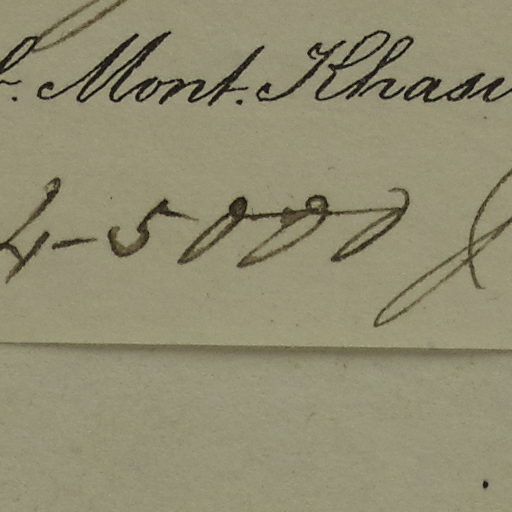 . Mont. Khasi
4-5000 f